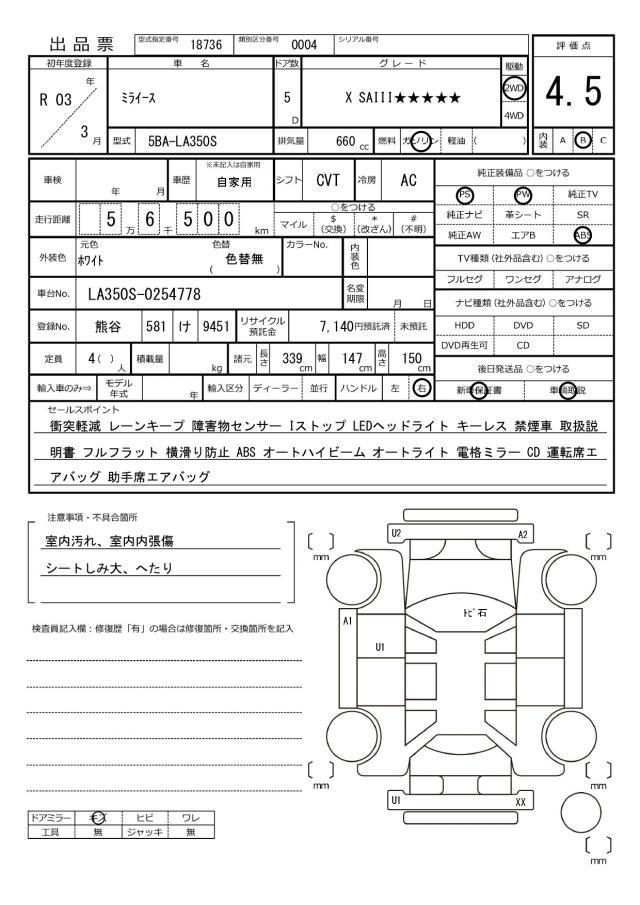 出品票 型式指定番号 18736 類別区分番号 0004 シリアル番号 評価点
初年度登録 車 名 ドア数 グレード 駆動
R 03 年 ミライース 5 D X SAIII★★★★★ 2WD 4WD 4.5
3 月 型式 5BA-LA350S 排気量 660 cc 燃料 ガソリン 軽油 ( ) 内装 A B C
車検 年 月 車歴 ※未記入は自家用 自家用 シフト CVT 冷房 AC 純正装備品 ○をつける
PS PW 純正TV
走行距離 5 万 6 千 5 0 0 km ○をつける マイル $ (交換) * (改ざん) # (不明) 純正ナビ 革シート SR
純正AW エアB ABS
外装色 元色 ホワイト 色替 ( 色替無 ) カラーNo. 内装色 TV種類 (社外品含む) ○をつける
フルセグ ワンセグ アナログ
車台No. LA350S-0254778 名変期限 月 日 ナビ種類 (社外品含む) ○をつける
登録No. 熊谷 581 け 9451 リサイクル預託金 7,140円預託済 未預託 HDD DVD SD
DVD再生可 CD
定員 4 ( ) 人 積載量 kg 諸元 長さ 339 cm 幅 147 cm 高さ 150 cm 後日発送品 ○をつける
輸入車のみ⇒ モデル年式 年 輸入区分 ディーラー 並行 ハンドル 左 右 新車保証書 車輌取説
セールスポイント
衝突軽減 レーンキープ 障害物センサー Iストップ LEDヘッドライト キーレス 禁煙車 取扱説
明書 フルフラット 横滑り防止 ABS オートハイビーム オートライト 電格ミラー CD 運転席エ
アバッグ 助手席エアバッグ
注意事項・不具合箇所
室内汚れ、室内内張傷
シートしみ大、へたり
検査員記入欄：修復歴「有」の場合は修復箇所・交換箇所を記入
ドアミラー キズ ヒビ ワレ
工具 無 ジャッキ 無
U2 A2
[ ] mm [ ] mm
トビ石
A1
U1
[ ] mm [ ] mm
U1 XX
[ ] mm